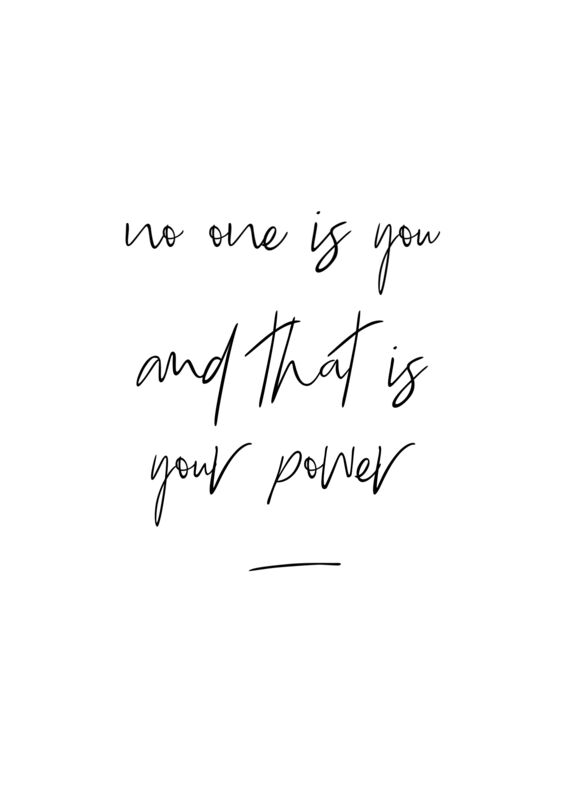 no one is you
and that is
your power